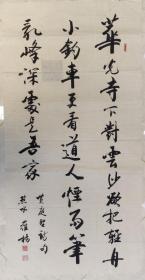 華光寺下對雲沙欲把輕舟
小釣車更看道人煙雨筆
亂峰深處是吾家
黃庭堅詩句